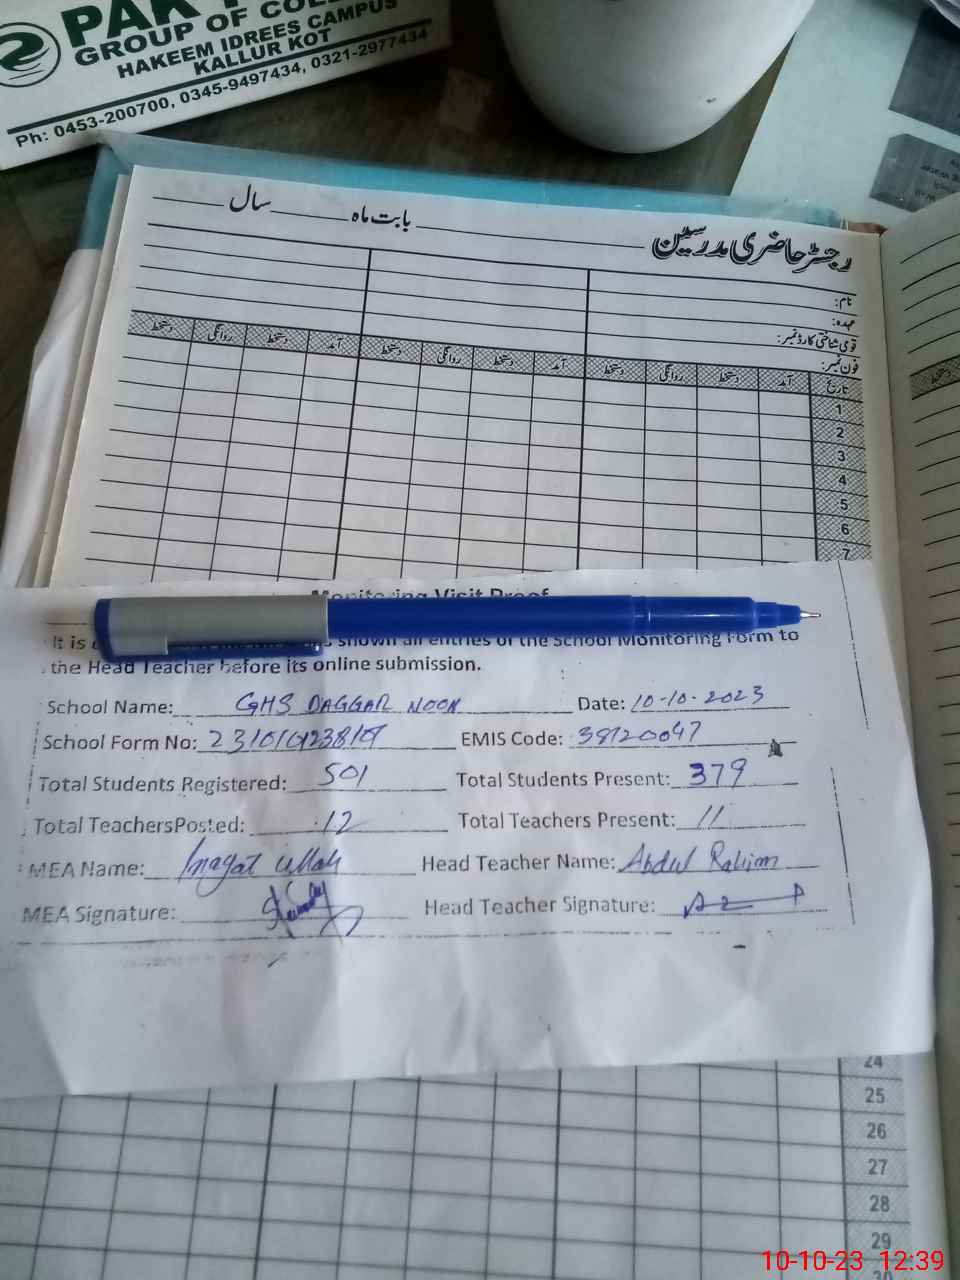 PAK
GROUP OF COL
HAKEEM IDREES CAMPUS
KALLUR KOT
Ph: 0453-200700, 0345-9497434, 0321-2977434
رجسٹر حاضری مدرسین ______ بابت ماہ ______ سال ______
نام:
عہدہ:
قومی شناختی کارڈ نمبر:
فون نمبر:
تاریخ آمد دستخط روانگی دستخط آمد دستخط روانگی دستخط آمد دستخط روانگی دستخط
1
2
3
4
5
6
7
Monitoring Visit Proof
It is shown all entries of the School Monitoring Form to
the Head Teacher before its online submission.
School Name: GHS DAGGAR NOON Date: 10-10-2023
School Form No: EMIS Code: 38120047
Total Students Registered: 501 Total Students Present: 379
Total TeachersPosted: 12 Total Teachers Present: 11
MEA Name: Inayat ullah Head Teacher Name: Abdul Rahim
MEA Signature: Head Teacher Signature:
24
25
26
27
28
29
30
10-10-23 12:39